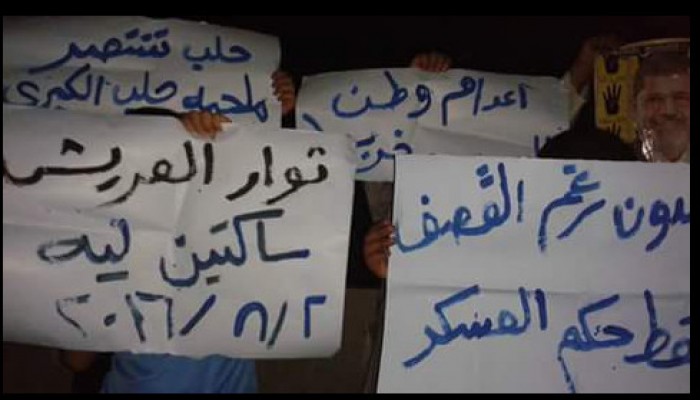 حلب تنتصر
ملحمة حلب الكبرى
اعدام وطن
ثوار العريش
ساكتين ليه
٢٠١٦/٨/٢
رغم القصف
حكم العسكر